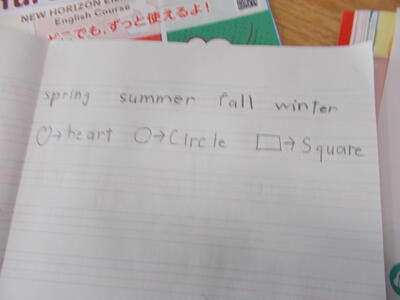 NEW HORIZON Ele
English Course
どこでも、ずっと使えるよ!
spring summer fall winter
♡→heart ○→Circle ▭→Square